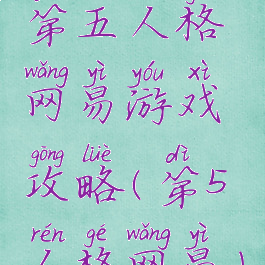 第五人格
wǎng yì yóu xì
网易游戏
gōng lüè dì
攻略(第5
rén gé wǎng yì
人格网易)